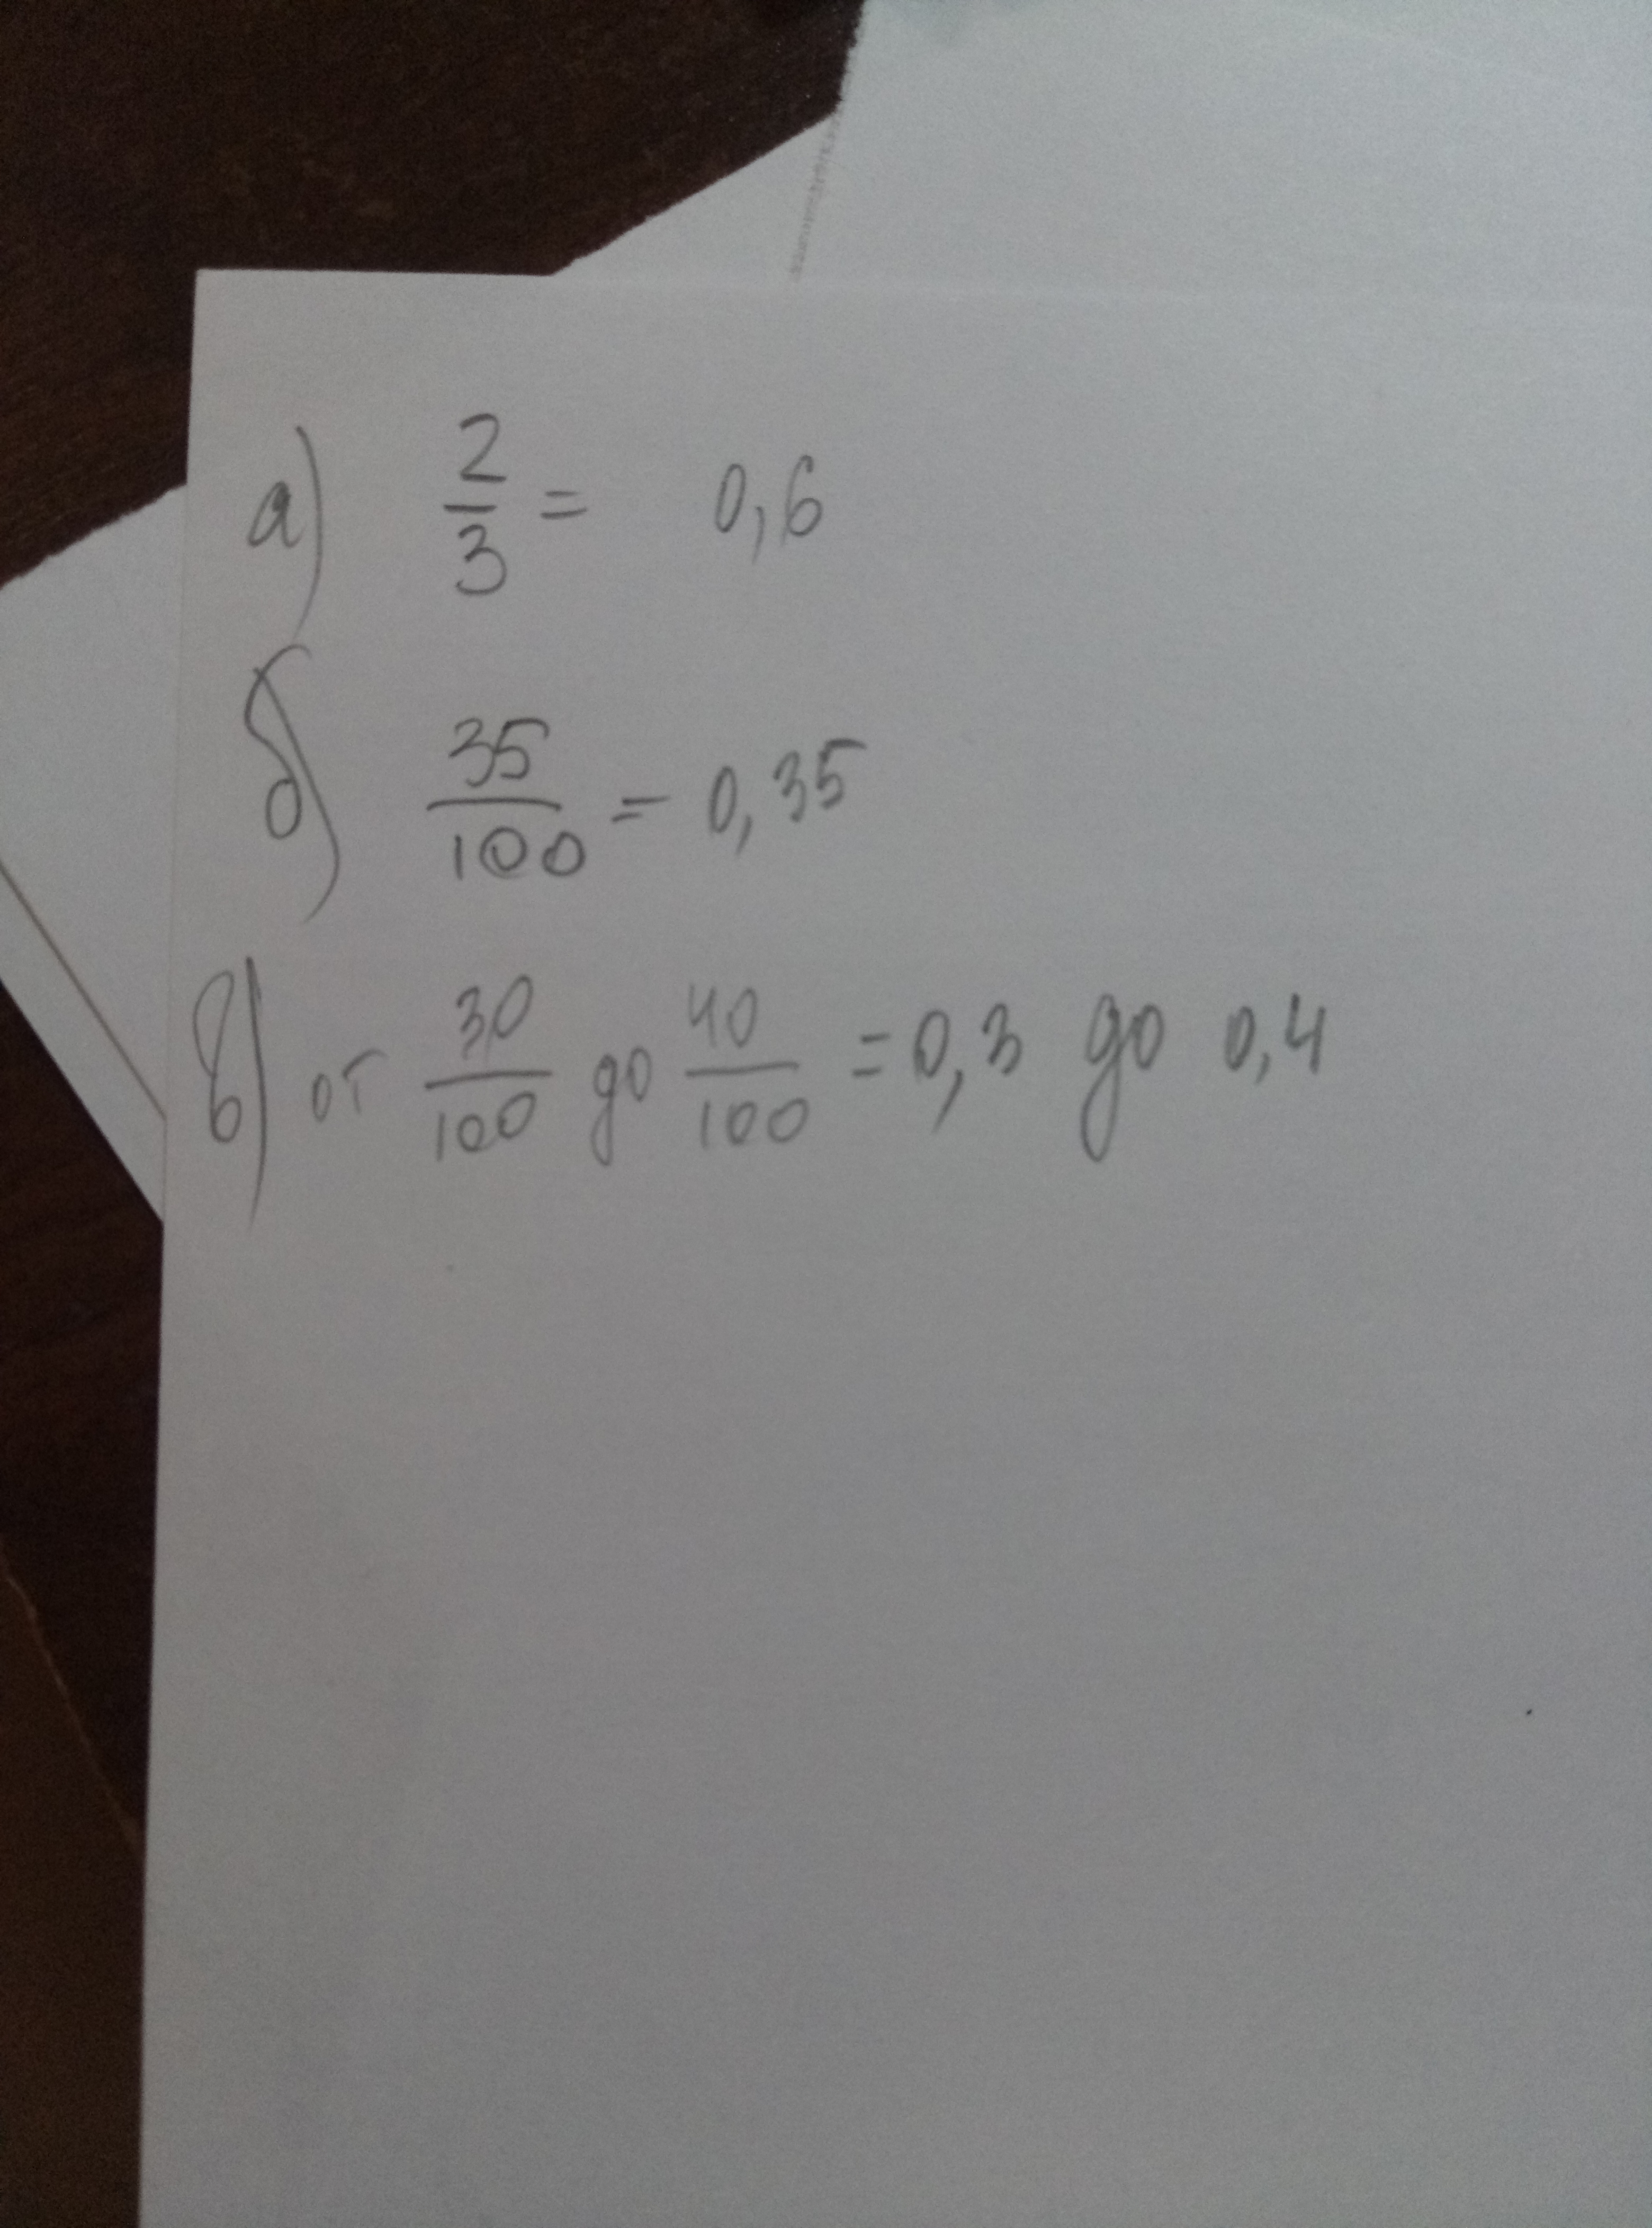 а) 2/3 = 0,6
б) 35/100 = 0,35
в) от 30/100 до 40/100 = 0,3 до 0,4